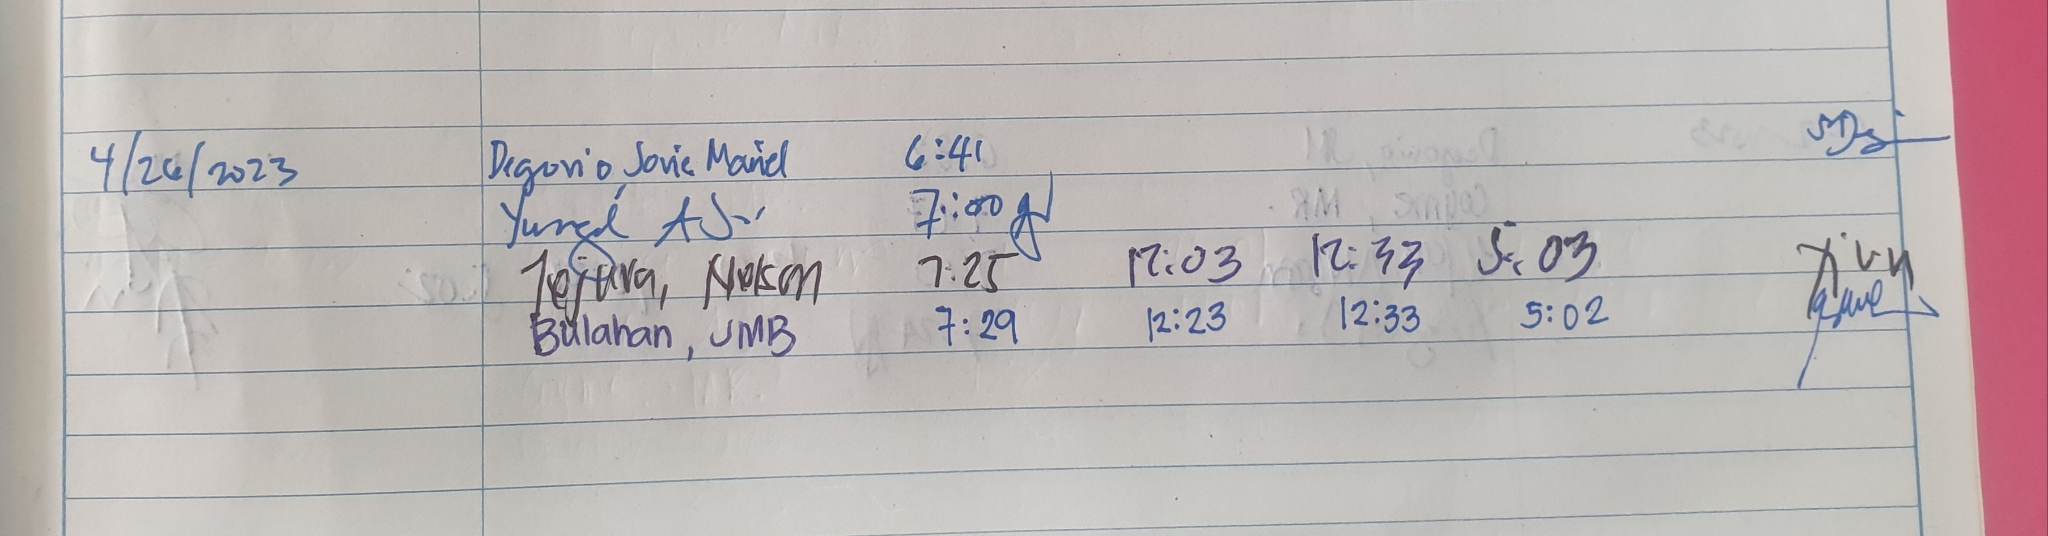 4/26/2023 Degorio, Jovie Mariel 6:41
A Jr. 7:00
Tejura, Nelson 7:25 12:03 12:33 5:03
Bulahan, JMB 7:29 12:23 12:33 5:02